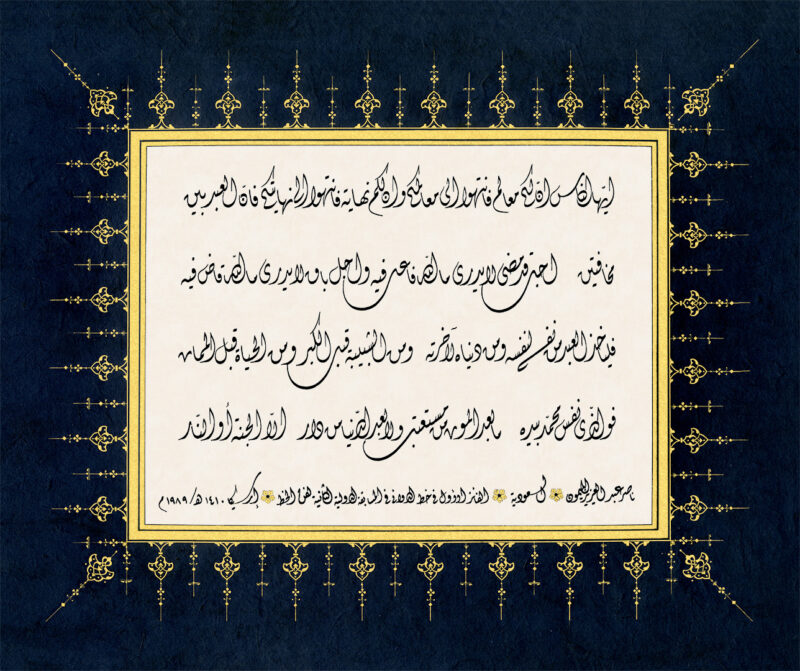 أيها الناس إن لكم معالم فانتهوا إلى معالمكم وإن لكم نهاية فانتهوا إلى نهايتكم فإن العبد بين
مخافتين أجل قد مضى لا يدري ما الله فاعل فيه وأجل باق لا يدري ما الله قاض فيه
فليأخذ العبد من نفسه لنفسه ومن دنياه لآخرته ومن الشبيبة قبل الكبر ومن الحياة قبل الممات
فوالذي نفس محمد بيده ما بعد الموت من مستعتب ولا بعد الدنيا من دار إلا الجنة أو النار
ناصر عبد العزيز الميمون السعودية الفائز الأول في خط الديواني في المسابقة الدولية الثانية لفن الخط إرسيكا ١٤١٠هـ/١٩٨٩م